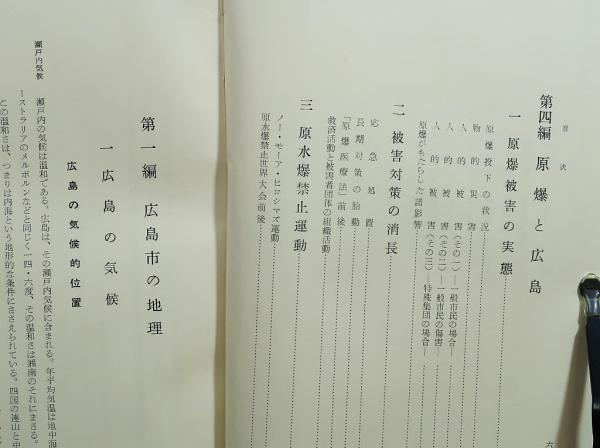 目次
第四編 原爆と広島
一 原爆被害の実態
原爆投下の状況
物的災害
人的被害(その一)―一般市民の場合―
人的被害(その二)―一般市民の傷害―
人的被害(その三)―特殊集団の場合―
原爆がもたらした諸影響
二 被害対策の消長
応急処置
長期対策の胎動
「原爆医療法」前後
救済活動と被害者団体の組織活動
三 原水爆禁止運動
ノー・モーア・ヒロシマズ運動
原水爆禁止世界大会前後
六
第一編 広島市の地理
一 広島の気候
広島の気候的位置
瀬戸内気候
瀬戸内の気候は温和である。広島は、その瀬戸内気候に含まれる。年平均気温は地中海
ーストラリアのメルボルンなどと同じく一四・六度、その温和さは湘南のそれにまさる。
この温和さは、つまりは内海という地形的な条件にささえられている。四国の連山と中